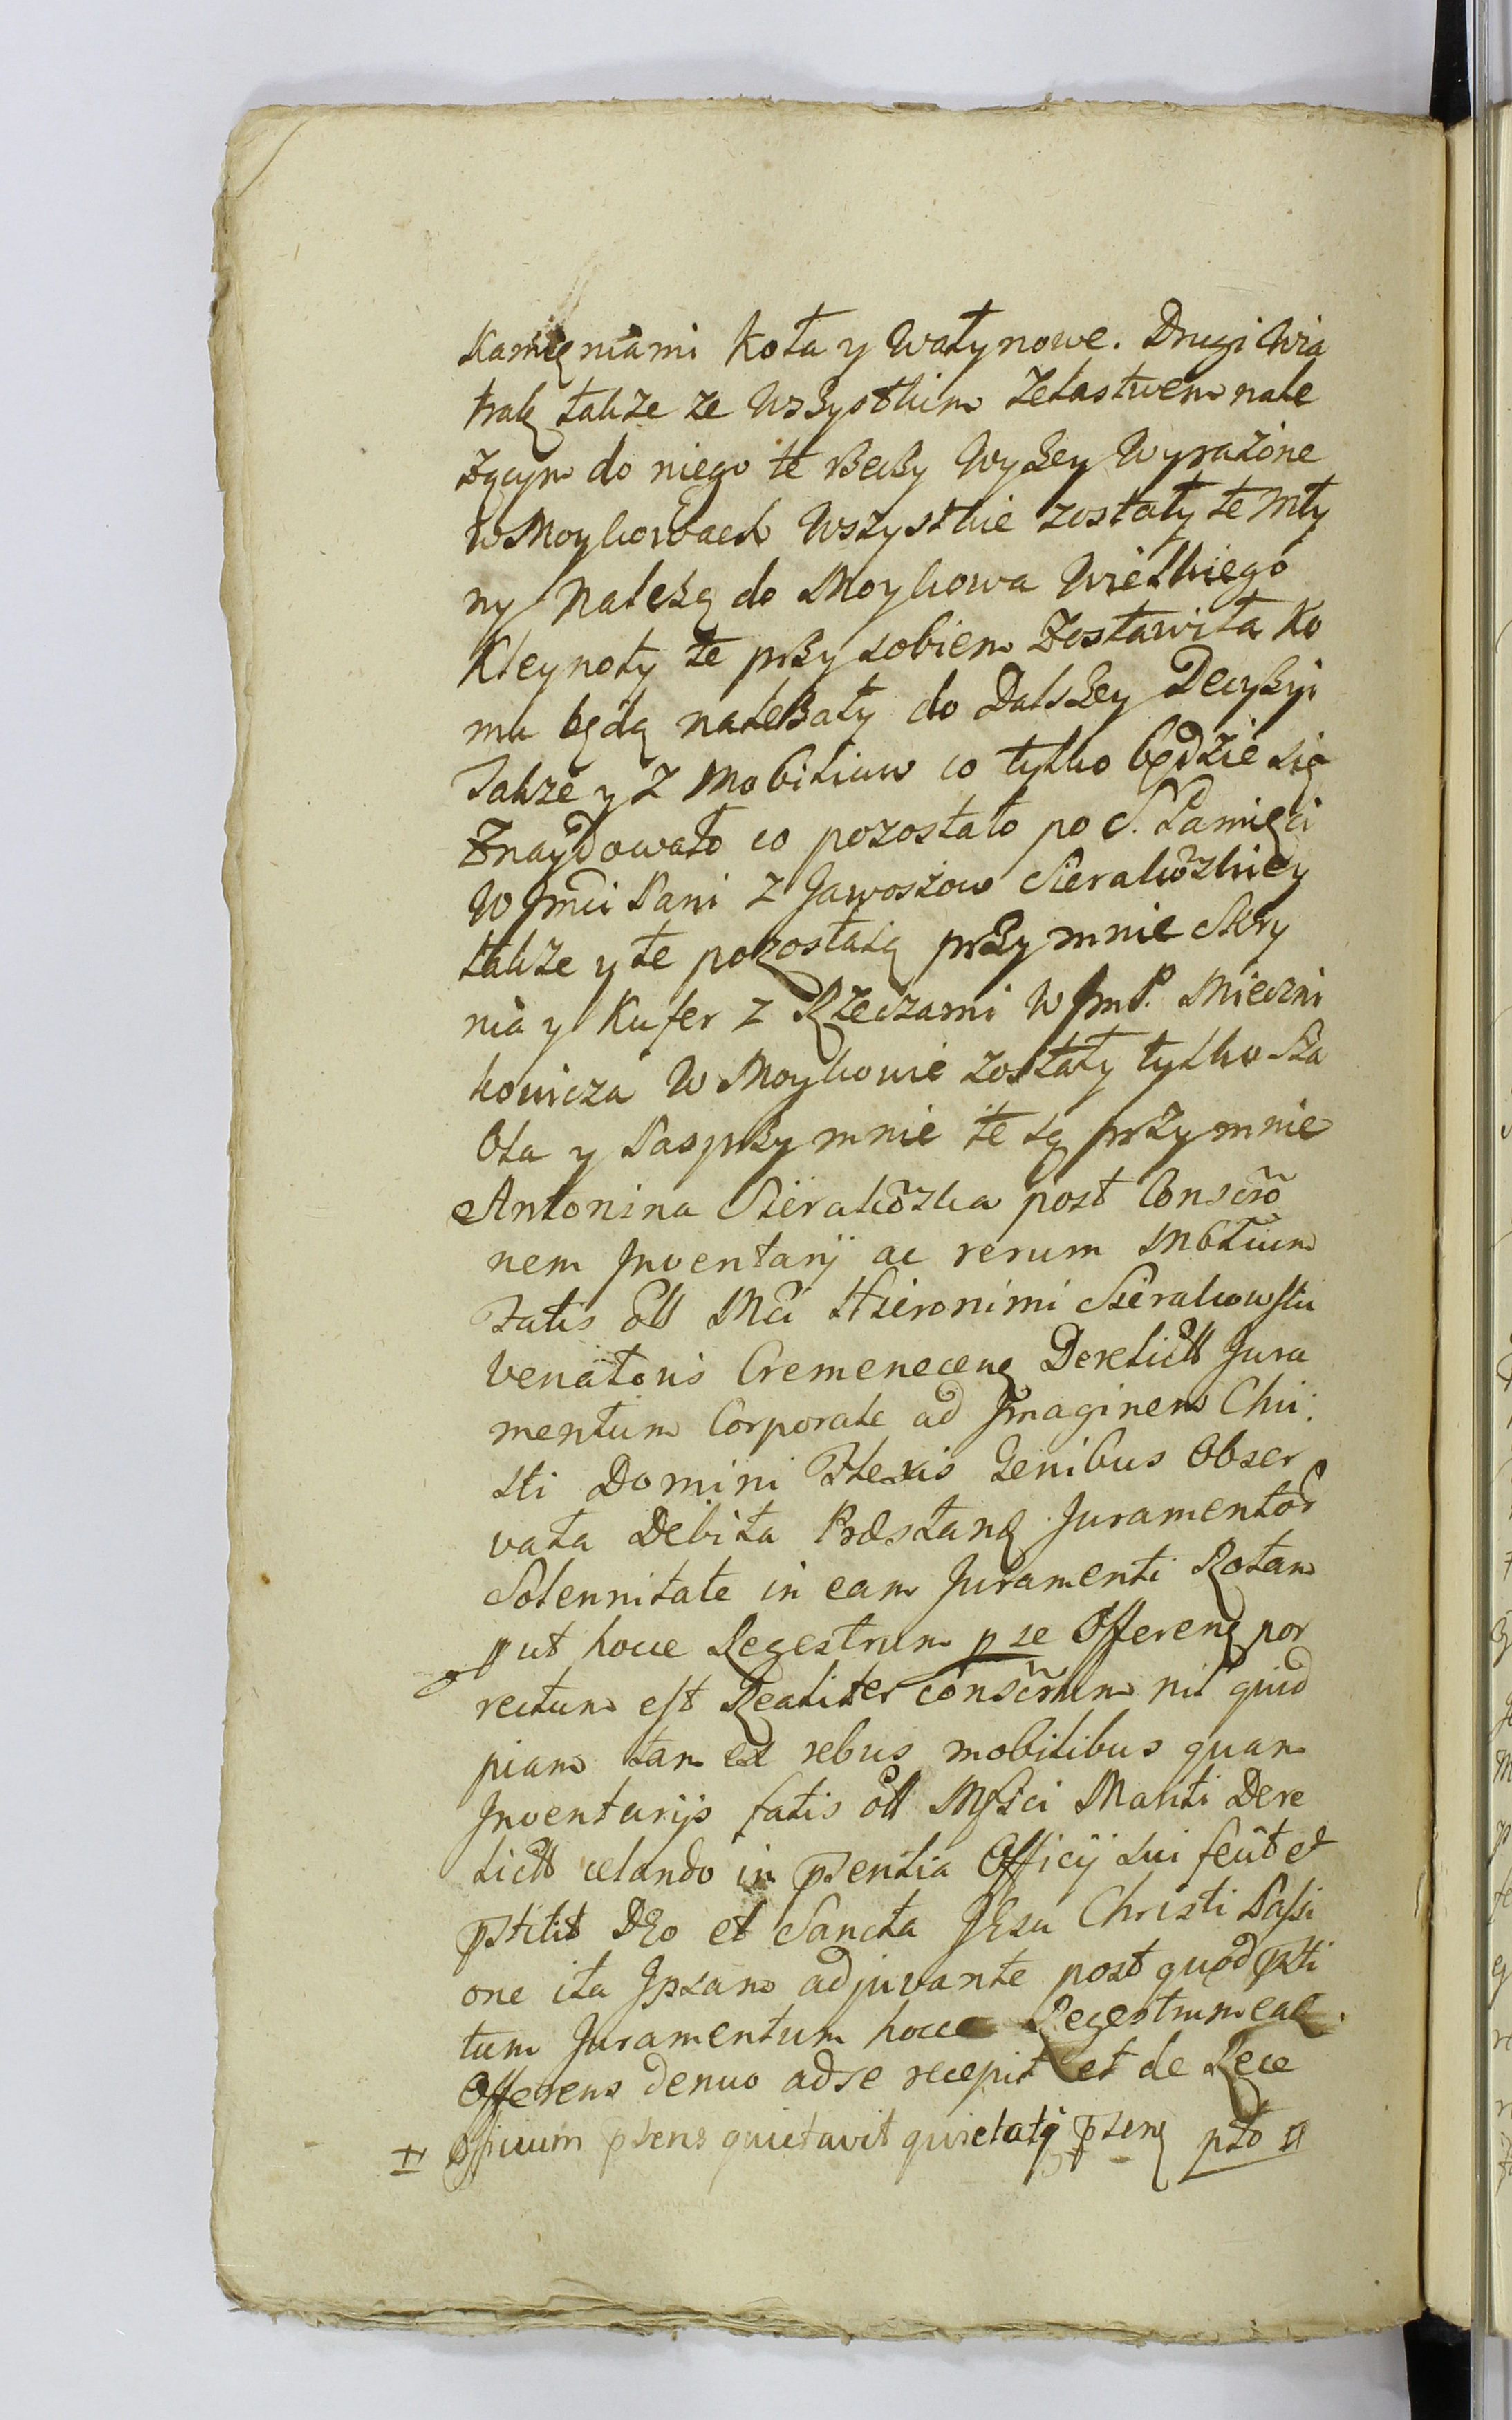 Kamięniami Koła y Wałynowe. Drugi Wia
trak także ze Wszystkim Żelastwem nale
żącym do niego te Reczy Wyżey Wyrażone
W Moykowcach Wszystkie zostały te Mły
ny Należą do Moykowa Wielkiego
Kleynoty te przy sobiem Zostawiła Ko
mu będą należały do Dalszey Decyzyi
Także y Z Mobiliuw co tylko będzie się
Znaydowało co pozostało po S. Pamięci
W Jmci Pani Z Jawoszow Sierakõzkiey
także y te pozostaią przy mnie Skry
nia y Kufer z Rzeczami W Jm P. Mieczni
kowicza W Moykowie zostały tylko Sza
bla y Pas przy mnie te są przy mnie
Antonina Sierakõzka post Conscrõ
nem Inventarij ac rerum Mbtium
Fatis oll Mci Hieronimi Sierakowski
Venatoris Cremenecen Derelict Jura
mentum Corporale ad Imaginem Chri
sti Domini Flexis Genibus Obser
vata Debita Præstan Juramentor
Solennitate in eam Juramenti Rotam
ut hocce Regestrum p se Offeren por
rectum est Realiter conscrñtum nil quid
piam tam ex rebus mobilibus quam
Inventarijs fatis oll Mfici Mariti Dere
lict celando in pñtentia Officij sui fecit et
pstitit DEo et Sancta JEsu Christi Passi
one ita Ipsam adjuvante post quod psti
tum Juramentum hocce Regestrum ead
Offerens denuo ad se recepit et de Rece
Officium psens quietavit quietatq psen pto